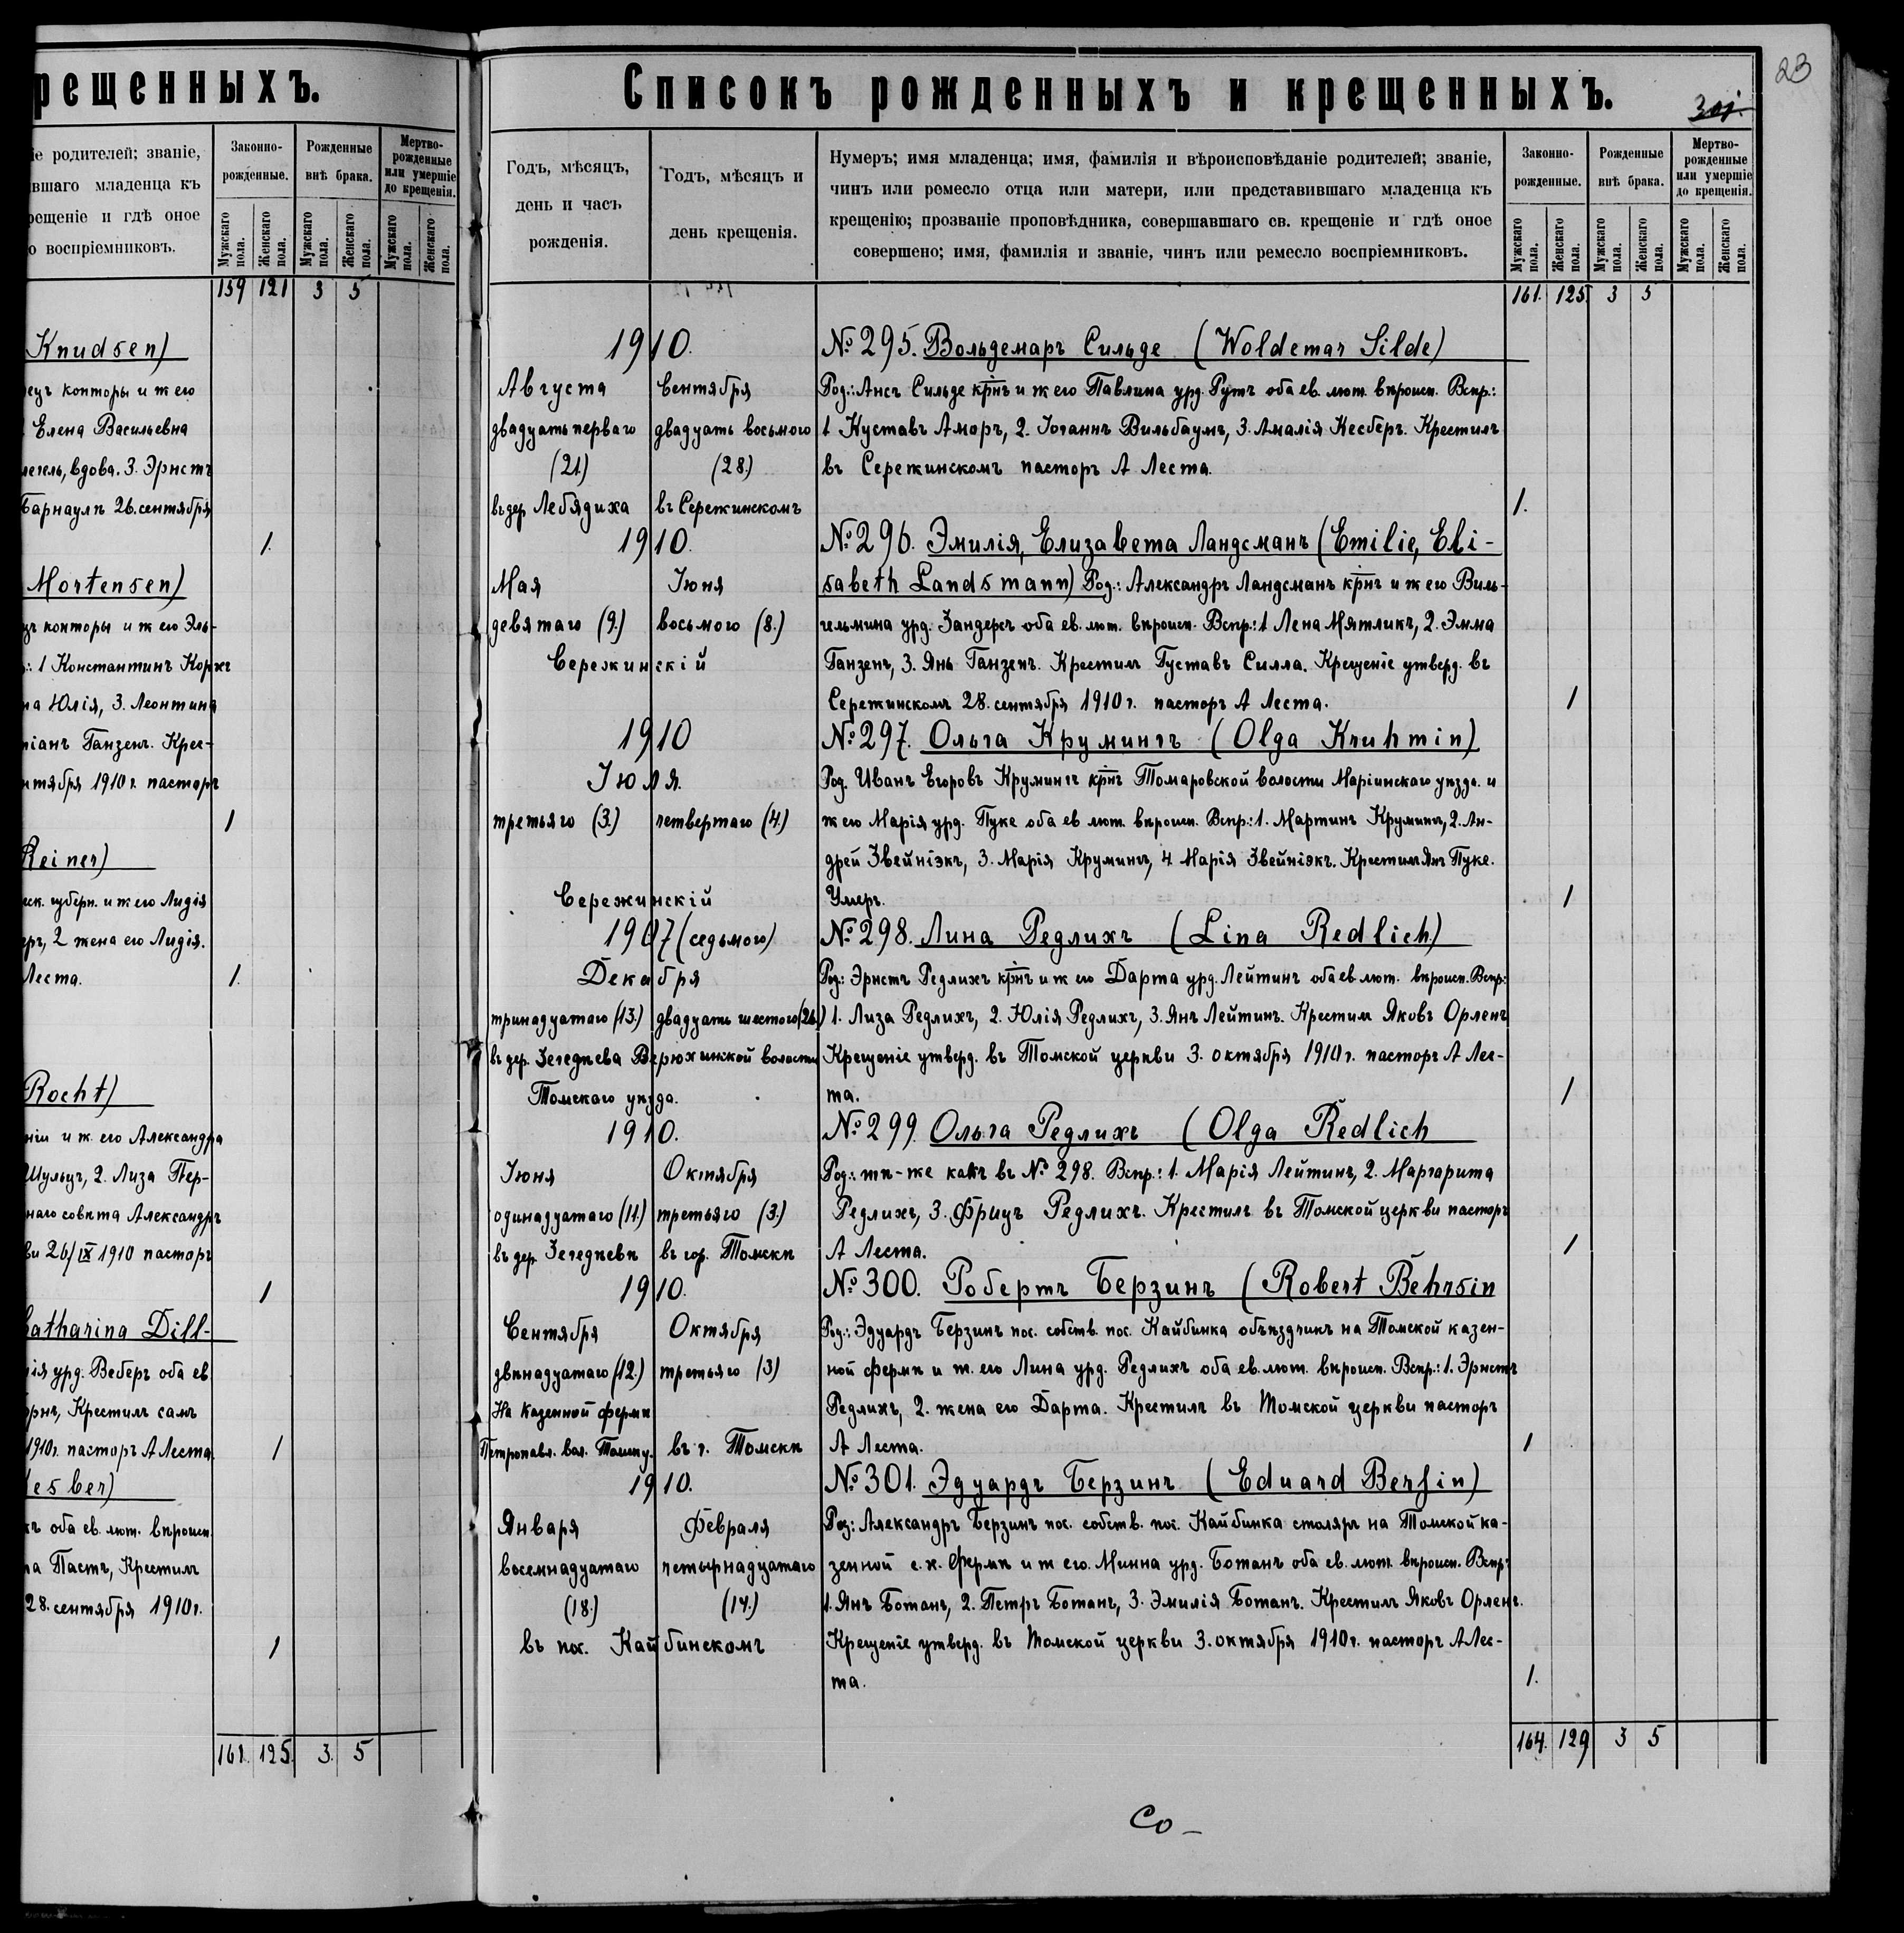 рещенныхъ.
іе родителей; званіе,
вшаго младенца къ
рещеніе и гдѣ оное
о воспріемниковъ.
Законно-
рожденные.
Рожденные
внѣ брака.
Мертво-
рожденные
или умершіе
до крещенія.
Мужскаго пола.
Женскаго пола.
Мужскаго пола.
Женскаго пола.
Мужскаго пола.
Женскаго пола.
159 121 3 5
Knudsen)
конторы и ж его
Елена Васильевна
вдова. 3. Эрнстъ
Барнаулѣ 26. сентября
1.
Mortensen)
конторы и ж его Эль-
1 Константинъ Корхъ
на Юлія, 3. Леонтина
Ганзенъ. Крес-
нтября 1910 г. пасторъ
1
Reiner)
губерн. и ж его Лидія
2 жена его Лидія.
Леста.
1.
Rocht)
и ж. его Александра
Шульцъ, 2. Лиза Пер-
наго совѣта Александръ
ви 26/IX 1910 пасторъ
1
Catharina Dill-
ія урд. Веберъ оба ев
Крестилъ самъ
1910 г. пасторъ А Леста
1
esber)
оба ев. лют. вѣроисп.
на Пастъ, Крестилъ
28. сентября 1910 г.
1
161. 125. 3. 5
23
Списокъ рожденныхъ и крещенныхъ.
301.
Годъ, мѣсяцъ,
день и часъ
рожденія.
Годъ, мѣсяцъ и
день крещенія.
Нумеръ; имя младенца; имя, фамилія и вѣроисповѣданіе родителей; званіе,
чинъ или ремесло отца или матери, или представившаго младенца къ
крещенію; прозваніе проповѣдника, совершавшаго св. крещеніе и гдѣ оное
совершено; имя, фамилія и званіе, чинъ или ремесло воспріемниковъ.
Законно-
рожденные.
Рожденные
внѣ брака.
Мертво-
рожденные
или умершіе
до крещенія.
Мужскаго пола.
Женскаго пола.
Мужскаго пола.
Женскаго пола.
Мужскаго пола.
Женскаго пола.
161. 125. 3 5
1910. № 295. Вольдемаръ Сильде (Woldemar Silde)
Августа Сентября Род.: Ансъ Сильде крнъ и ж его Павлина урд. Рутъ оба ев. лют. вѣроисп. Вспр.:
двадцать перваго двадцать восьмого 1 Куставъ Аморъ, 2. Іоганнъ Вильбаумъ, 3. Амалія Кесберъ. Крестилъ
(21.) (28.) въ Сережинскомъ пасторъ А Леста.
въ дер Лебядиха въ Сережинскомъ 1.
1910. № 296. Эмилія, Елизавета Ландсманъ (Emilie, Eli-
Мая Іюня sabeth Landsmann) Род.: Александръ Ландсманъ крнъ и ж его Виль-
девятаго (9.) восьмого (8.) гельмина урд. Зандерсъ оба ев. лют. вѣроисп. Вспр.: 1 Лена Мятликъ, 2. Эмма
Сережинскій Ганзенъ, 3. Янъ Ганзенъ. Крестилъ Густавъ Силла. Крещеніе утверд. въ
Сережинскомъ 28. сентября 1910 г. пасторъ А Леста. 1
1910 № 297. Ольга Круминъ (Olga Kruhmin)
Іюля. Род. Иванъ Егоровъ Круминъ крнъ Томаровской волости Маріинскаго уѣзда. и
третьяго (3.) четвертаго (4.) ж его Марія урд. Пуке оба ев лют. вѣроисп. Вспр.: 1. Мартинъ Круминъ, 2. Ан-
дрей Звейніэкъ, 3. Марія Круминъ, 4 Марія Звейніэкъ. Крестилъ Янъ Пуке.
Сережинскій Умеръ. 1
1907 (седьмого) № 298. Лина Редлихъ (Lina Redlich.)
Декабря Род.: Эрнстъ Редлихъ крнъ и ж его Дарта урд. Лейтинъ оба ев лют. вѣроисп. Вспр:
тринадцатаго (13.) двадцать шестого (26.) 1. Лиза Редлихъ, 2. Юлія Редлихъ, 3. Янъ Лейтинъ. Крестилъ Яковъ Орленъ
въ дер. Зегедѣева Верюхинской волости Крещеніе утверд. въ Томской церкви 3. октября 1910 г. пасторъ А Лес-
Томскаго уѣзда. та. 1
1910. № 299. Ольга Редлихъ (Olga Redlich
Іюня Октября Род.: тѣ-же какъ въ № 298. Вспр.: 1. Марія Лейтинъ, 2. Маргарита
одинадцатаго (11.) третьяго (3.) Редлихъ, 3. Фрицъ Редлихъ. Крестилъ въ Томской церкви пасторъ
въ дер. Зегедѣевѣ въ гор. Томскѣ А Леста. 1
1910. № 300. Робертъ Берзинъ (Robert Behrsin
Сентября Октября Род.: Эдуардъ Берзинъ пос. собств. пос. Кайбинка объѣздчикъ на Томской казен-
двѣнадцатаго (12.) третьяго (3) ной фермѣ и ж. его Лина урд. Редлихъ оба ев. лют. вѣроисп. Вспр.: 1. Эрнстъ
На Казенной фермѣ Редлихъ, 2. жена его Дарта. Крестилъ въ Томской церкви пасторъ
Петропавл. вол. Томск. у. въ г. Томскѣ А Леста. 1
1910. № 301. Эдуардъ Берзинъ (Eduard Bersin)
Января Февраля Род: Александръ Берзинъ пос. собств. пос. Кайбинка столяръ на Томской ка-
восемнадцатаго четырнадцатаго зенной с. х. фермѣ и ж его. Минна урд. Ботанъ оба ев. лют. вѣроисп. Вспр:
(18.) (14.) 1. Янъ Ботанъ, 2. Петръ Ботанъ, 3. Эмилія Ботанъ. Крестилъ Яковъ Орленъ.
въ пос. Кайбинскомъ Крещеніе утверд. въ Томской церкви 3. октября 1910 г. пасторъ А Лес-
та. 1.
164. 129. 3 5
Со-